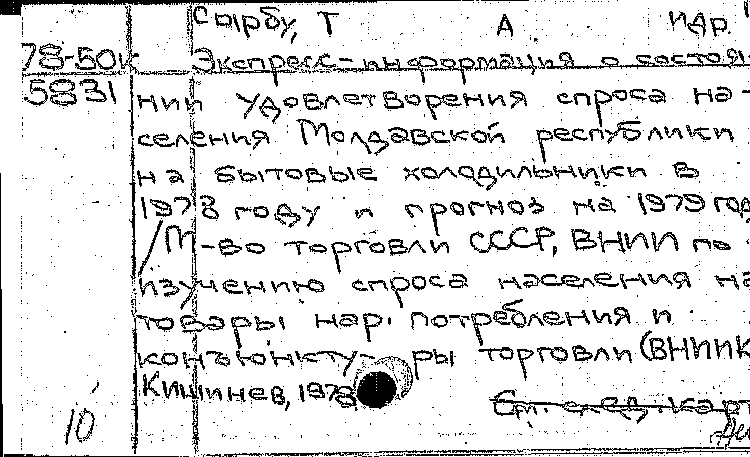 Сырбу, Т А и др.
78-50к Экспресс-информация о состоя-
5831 нии удовлетворения спроса на-
селения Молдавской республики
на бытовые холодильники в
1978 году и прогноз на 1979 год
/М-во торговли СССР, ВНИИ по
изучению спроса населения на
товары нар. потребления и
конъюнкту- ры торговли (ВНИИК
Кишинев, 1978
10 См. след. карт